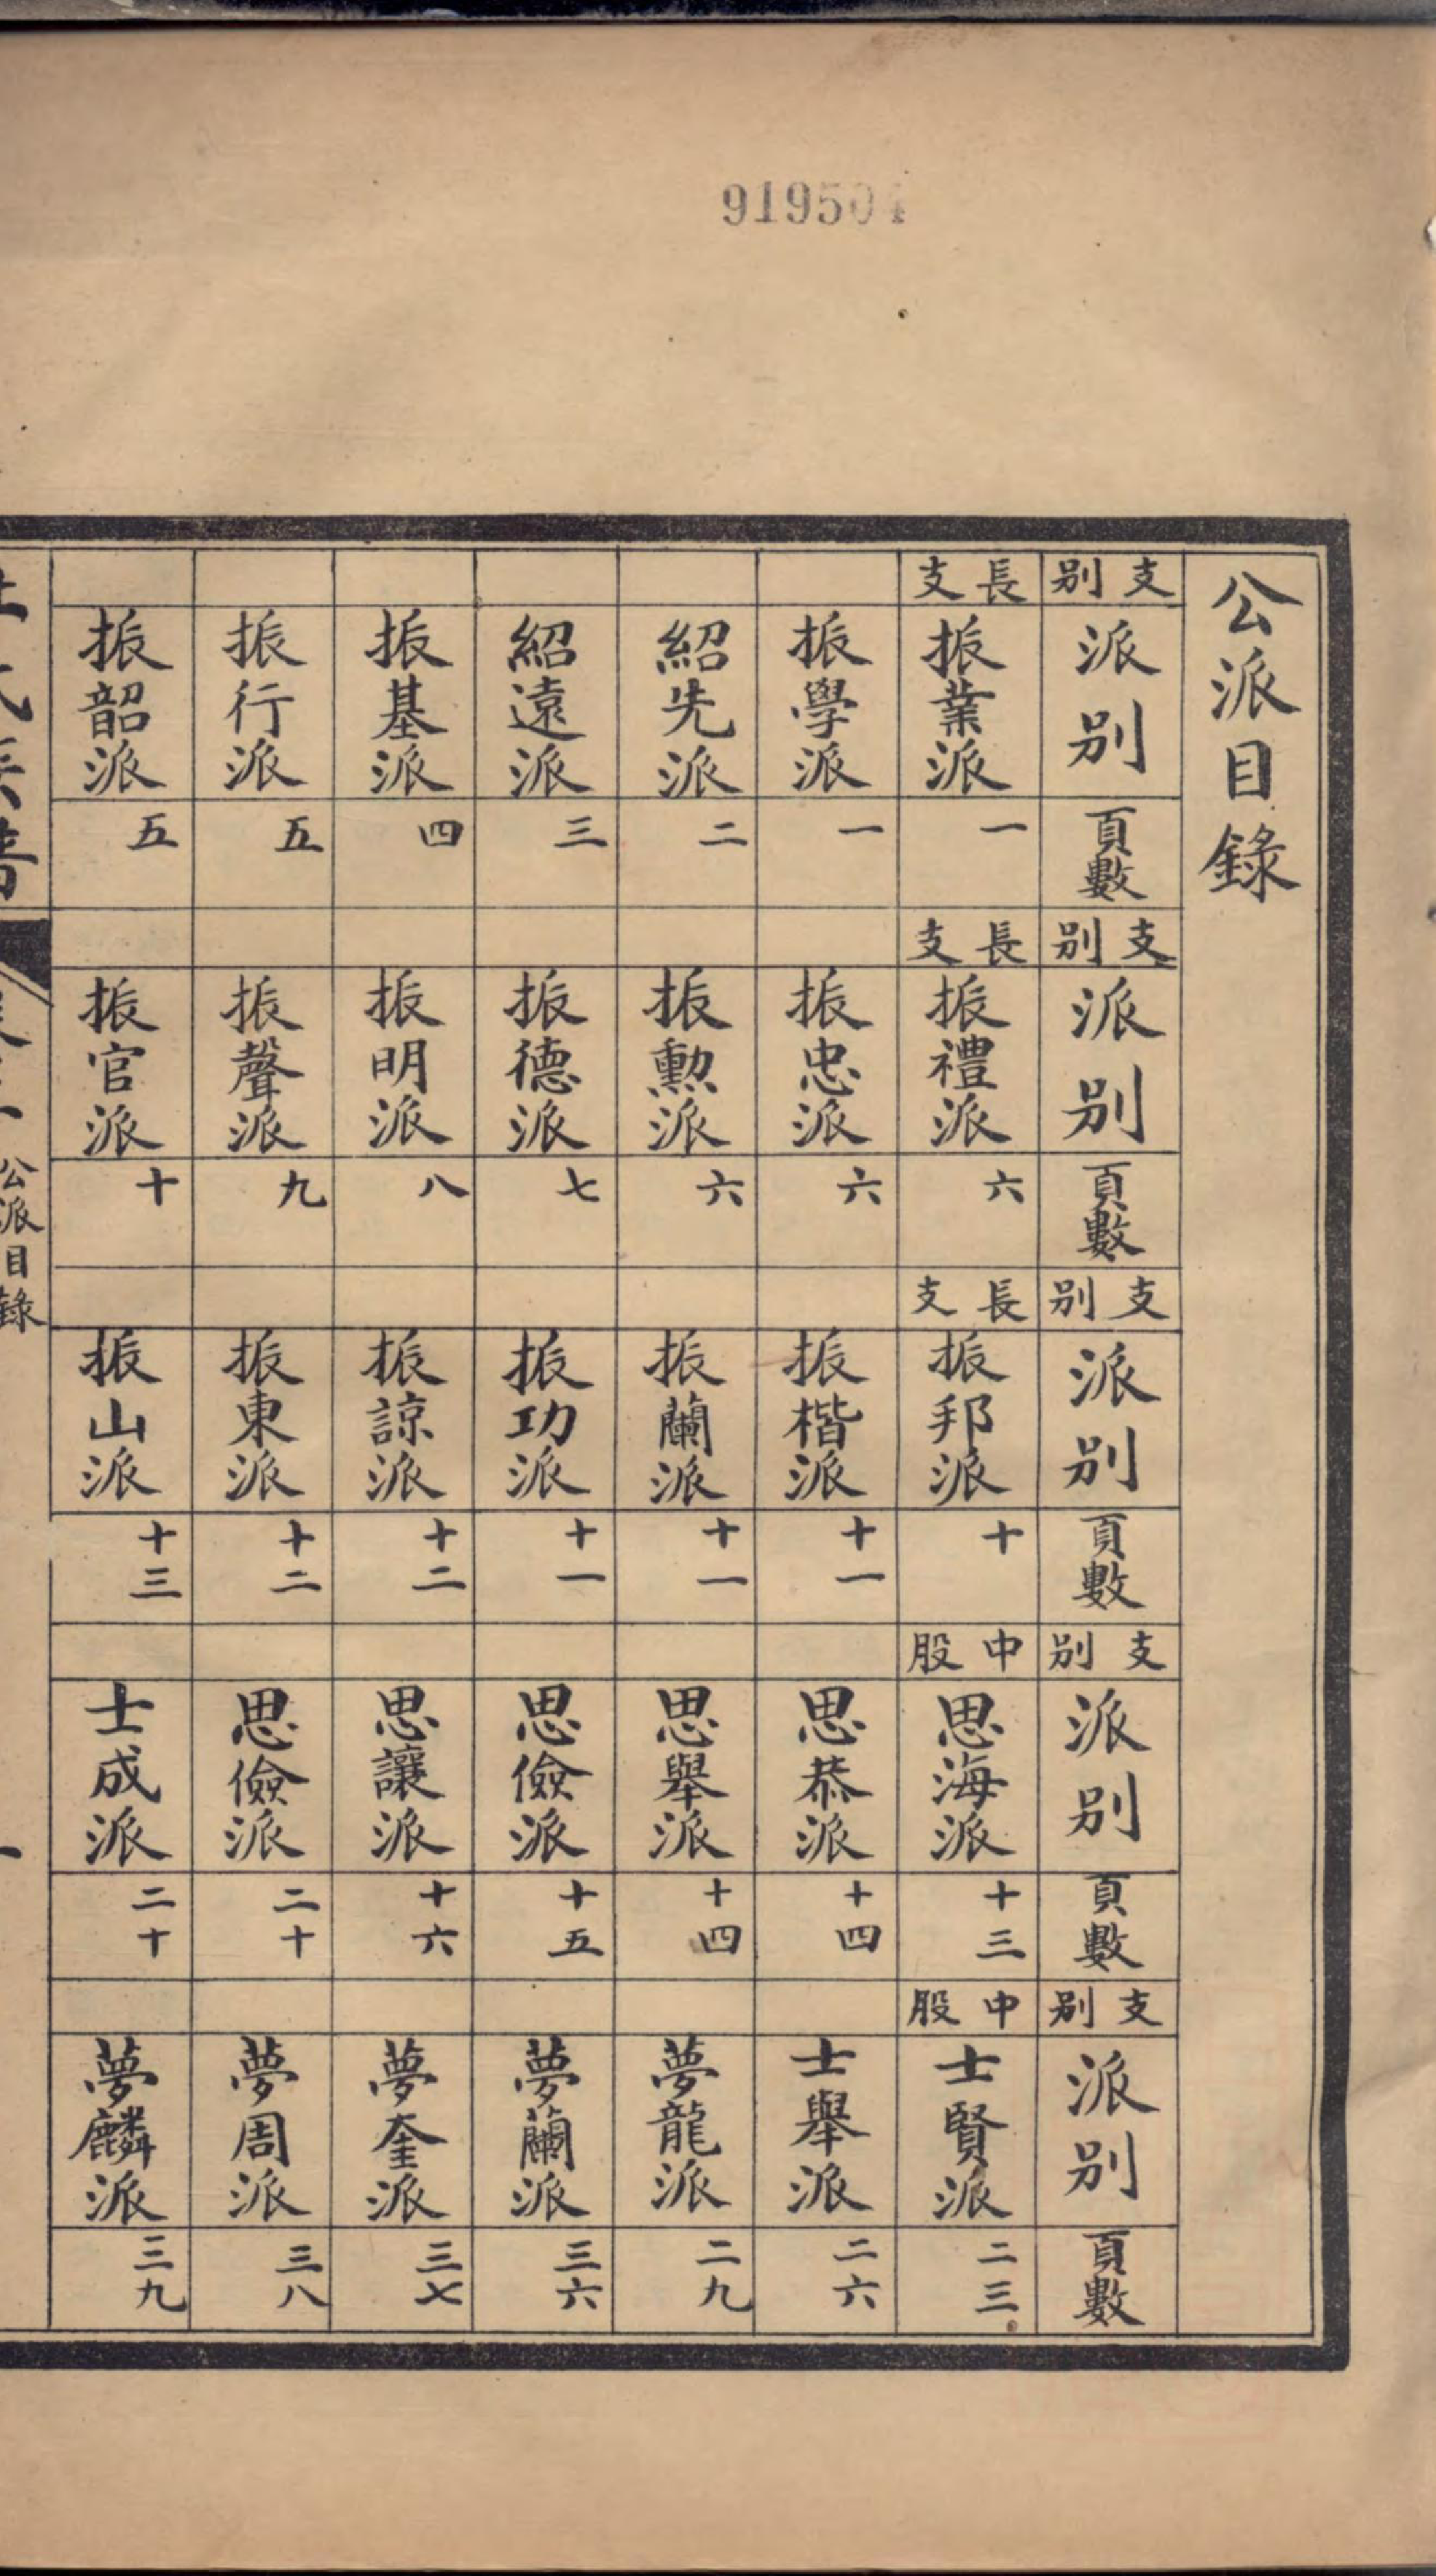 919504
公派目錄
支別 派別 頁數 支別 派別 頁數 支別 派別 頁數 支別 派別 頁數 支別 派別 頁數
長支 振業派 一 長支 振禮派 六 長支 振邦派 十 中股 思海派 十三 中股 士賢派 二三
振學派 一 振忠派 六 振楷派 十一 思恭派 十四 士舉派 二六
紹先派 二 振勲派 六 振蘭派 十一 思舉派 十四 夢龍派 二九
紹遠派 三 振德派 七 振功派 十一 思儉派 十五 夢蘭派 三六
振基派 四 振明派 八 振諒派 十二 思讓派 十六 夢奎派 三七
振行派 五 振聲派 九 振東派 十二 思儉派 二十 夢周派 三八
振韶派 五 振官派 十 振山派 十三 士成派 二十 夢麟派 三九
公派目錄